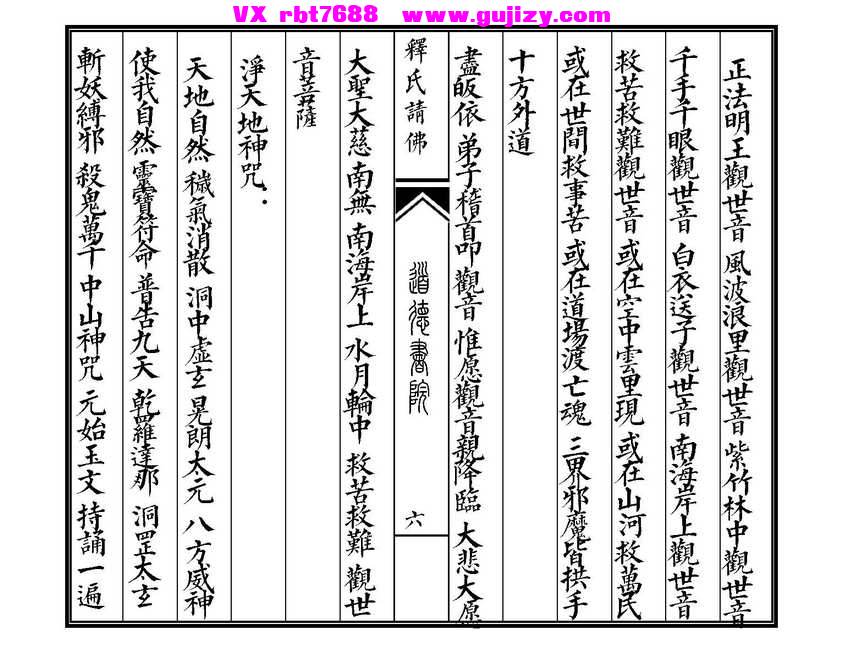 VX rbt7688 www.gujizy.com
正法明王觀世音 風波浪里觀世音 紫竹林中觀世音
千手千眼觀世音 白衣送子觀世音 南海岸上觀世音
救苦救難觀世音 或在空中雲里現 或在山河救萬民
或在世間救事苦 或在道場渡亡魂 三界邪魔皆拱手
十方外道
盡皈依 弟子稽首叩觀音 惟愿觀音親降臨 大悲大愿
釋氏請佛
道德書院
六
大聖大慈 南無 南海岸上 水月輪中 救苦救難 觀世
音菩薩
淨天地神咒：
天地自然 穢氣消散 洞中虛玄 晃朗太元 八方威神
使我自然 靈寶符命 普告九天 乾羅達那 洞罡太玄
斬妖縛邪 殺鬼萬千 中山神咒 元始玉文 持誦一遍